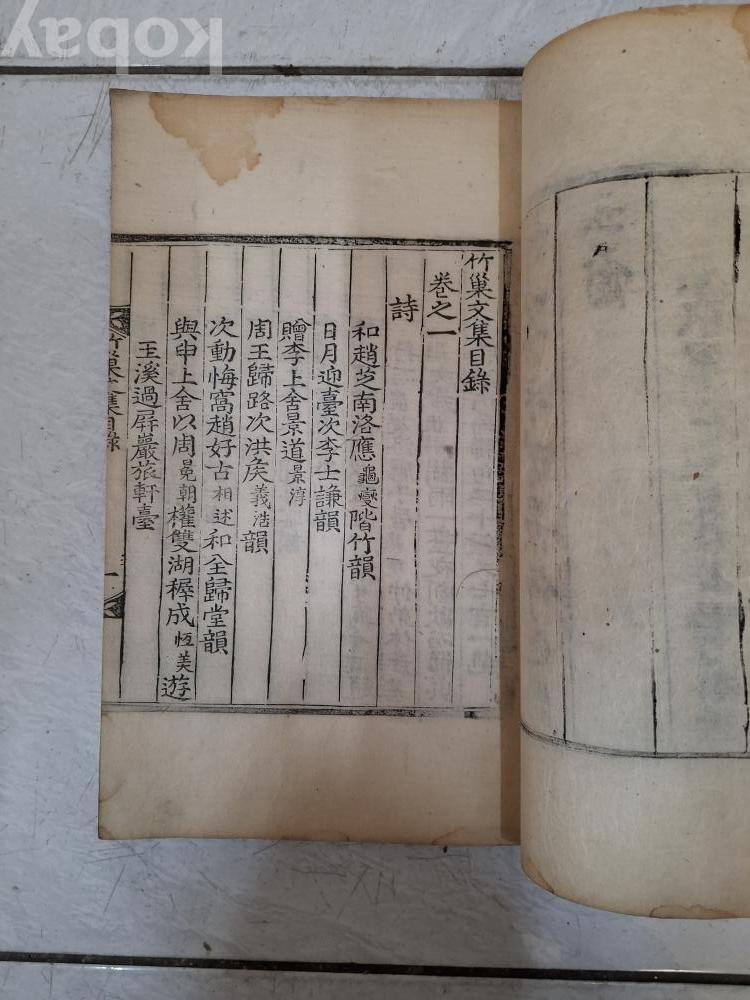 kobay
竹巢文集目錄
卷之一
詩
和趙芝南洛應龜燮階竹韻
日月迎臺次李士謙韻
贈李上舍景道景淳
周王歸路次洪矦義浩韻
次動悔窩趙好古相述和全歸堂韻
與申上舍以周冕朝權雙湖穉成恆美遊
玉溪過屛巖旅軒臺
竹巢文集目錄
一